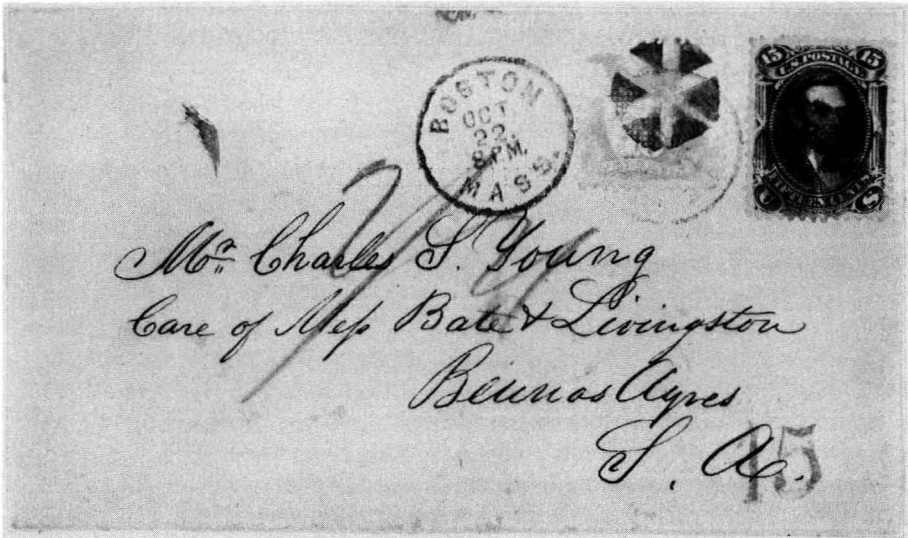 BOSTON
OCT
22.
8 PM.
MASS.
15 15
U.S. POSTAGE
FIFTEEN CENTS
U S
Mr. Charles S. Young
Care of Mess Bate & Livingston
Beunos Ayres
S. A.
15